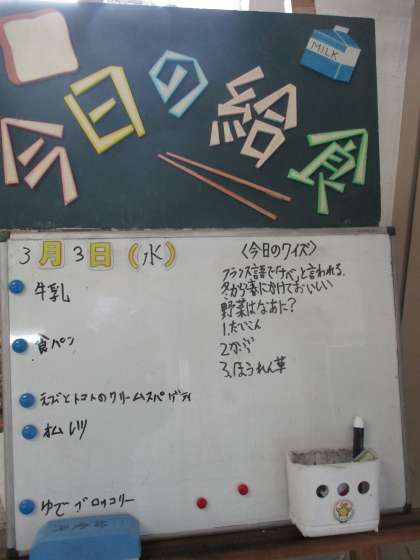 今日の給食
MILK
3月3日(水)
牛乳
食パン
えびとトマトのクリームスパゲティ
オムレツ
ゆでブロッコリー
〈今日のクイズ〉
フランス語で「ナベ」と言われる、
冬から春にかけておいしい
野菜はなあに?
1.だいこん
2.かぶ
3.ほうれん草